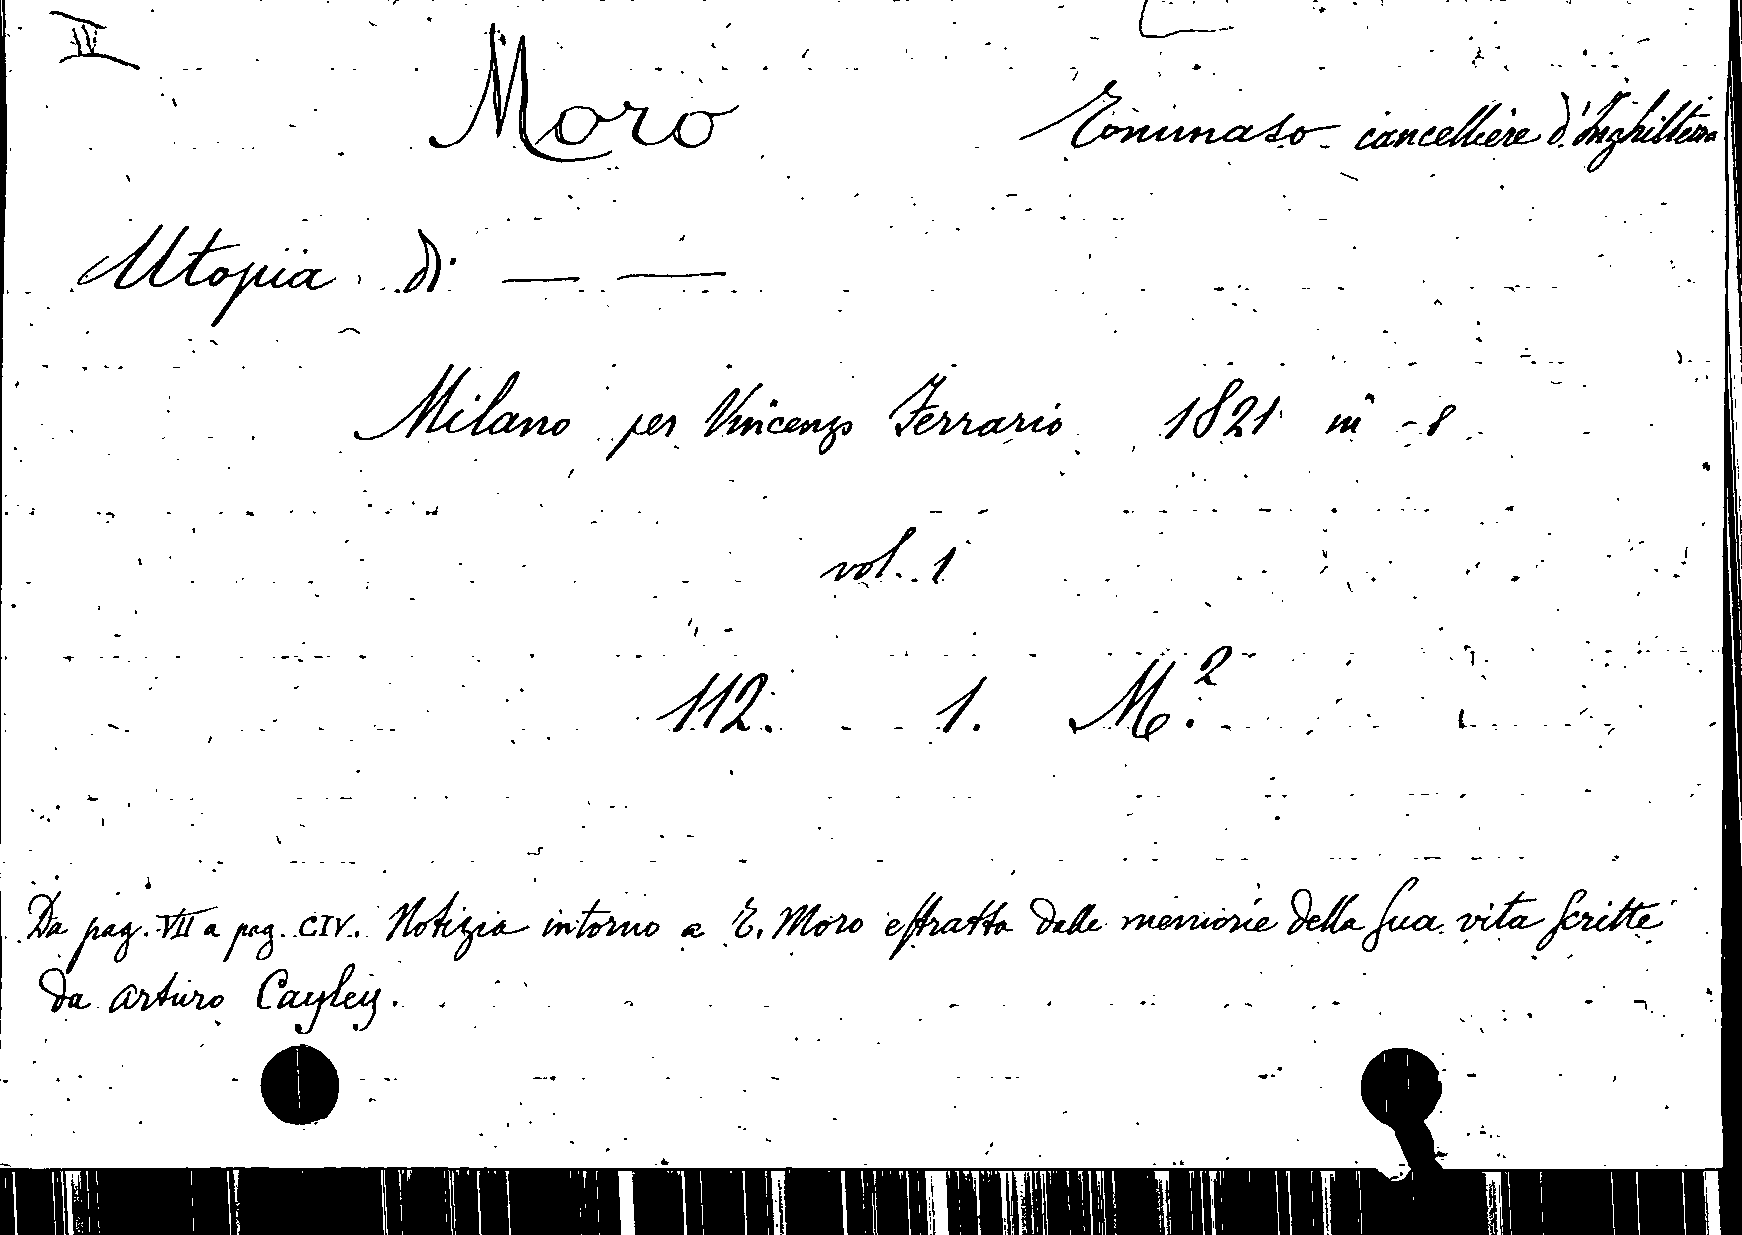 IV
Moro Tommaso cancelliere d'Inghilterra
Utopia di — —
Milano per Vincenzo Ferrario 1821 in -8
vol. 1
112. 1. Mo.2
Da pag. VII a pag. CIV. Notizia intorno a T. Moro estratta dalle memorie della sua vita scritte
da Arturo Cayley.